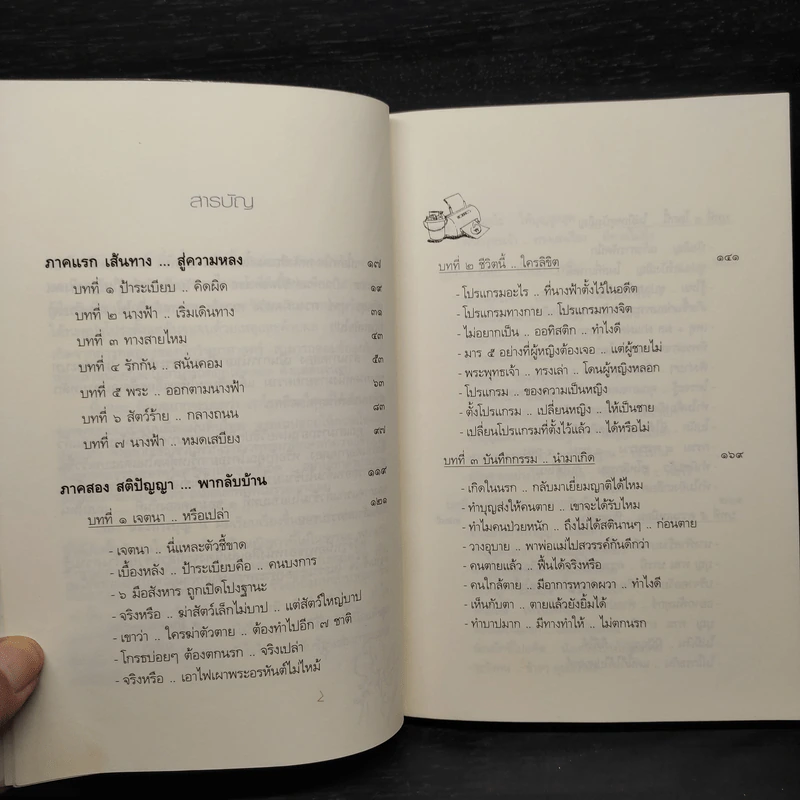 สารบัญ
ภาคแรก เส้นทาง ... สู่ความหลง ๑๗
บทที่ ๑ ป้าระเบียบ .. คิดผิด ๑๙
บทที่ ๒ นางฟ้า .. เริ่มเดินทาง ๓๑
บทที่ ๓ ทางสายไหม ๔๓
บทที่ ๔ รักกัน .. สนั่นคอม ๕๓
บทที่ ๕ พระ .. ออกตามนางฟ้า ๖๓
บทที่ ๖ สัตว์ร้าย .. กลางถนน ๘๓
บทที่ ๗ นางฟ้า .. หมดเสบียง ๙๗
ภาคสอง สติปัญญา ... พากลับบ้าน ๑๑๙
บทที่ ๑ เจตนา .. หรือเปล่า ๑๒๑
- เจตนา .. นี่แหละตัวชี้ขาด
- เบื้องหลัง .. ป้าระเบียบคือ .. คนบงการ
- ๖ มือสังหาร ถูกเปิดโปงฐานะ
- จริงหรือ .. ฆ่าสัตว์เล็กไม่บาป .. แต่สัตว์ใหญ่บาป
- เขาว่า .. ใครฆ่าตัวตาย .. ต้องทำไปอีก ๗ ชาติ
- โกรธบ่อยๆ ต้องตกนรก .. จริงเปล่า
- จริงหรือ .. เอาไฟเผาพระอรหันต์ไม่ไหม้
บทที่ ๒ ชีวิตนี้ .. ใครลิขิต ๑๔๑
- โปรแกรมอะไร .. ที่นางฟ้าตั้งไว้ในอดีต
- โปรแกรมทางกาย .. โปรแกรมทางจิต
- ไม่อยากเป็น .. ออทิสติก .. ทำไงดี
- มาร ๕ อย่างที่ผู้หญิงต้องเจอ .. แต่ผู้ชายไม่
- พระพุทธเจ้า .. ทรงเล่า .. โดนผู้หญิงหลอก
- โปรแกรม .. ของความเป็นหญิง
- ตั้งโปรแกรม .. เปลี่ยนหญิง .. ให้เป็นชาย
- เปลี่ยนโปรแกรมที่ตั้งไว้แล้ว .. ได้หรือไม่
บทที่ ๓ บันทึกกรรม .. นำมาเกิด ๑๖๙
- เกิดในนรก .. กลับมาเยี่ยมญาติได้ไหม
- ทำบุญส่งให้คนตาย .. เขาจะได้รับไหม
- ทำไมคนป่วยหนัก .. ถึงไม่ได้สตินานๆ .. ก่อนตาย
- วางอุบาย .. พาพ่อแม่ไปสวรรค์กันดีกว่า
- คนตายแล้ว .. ฟื้นได้จริงหรือ
- คนใกล้ตาย .. มีอาการหวาดผวา .. ทำไงดี
- เห็นกับตา .. ตายแล้วยังยิ้มได้
- ทำบาปมาก .. มีทางทำให้ .. ไม่ตกนรก